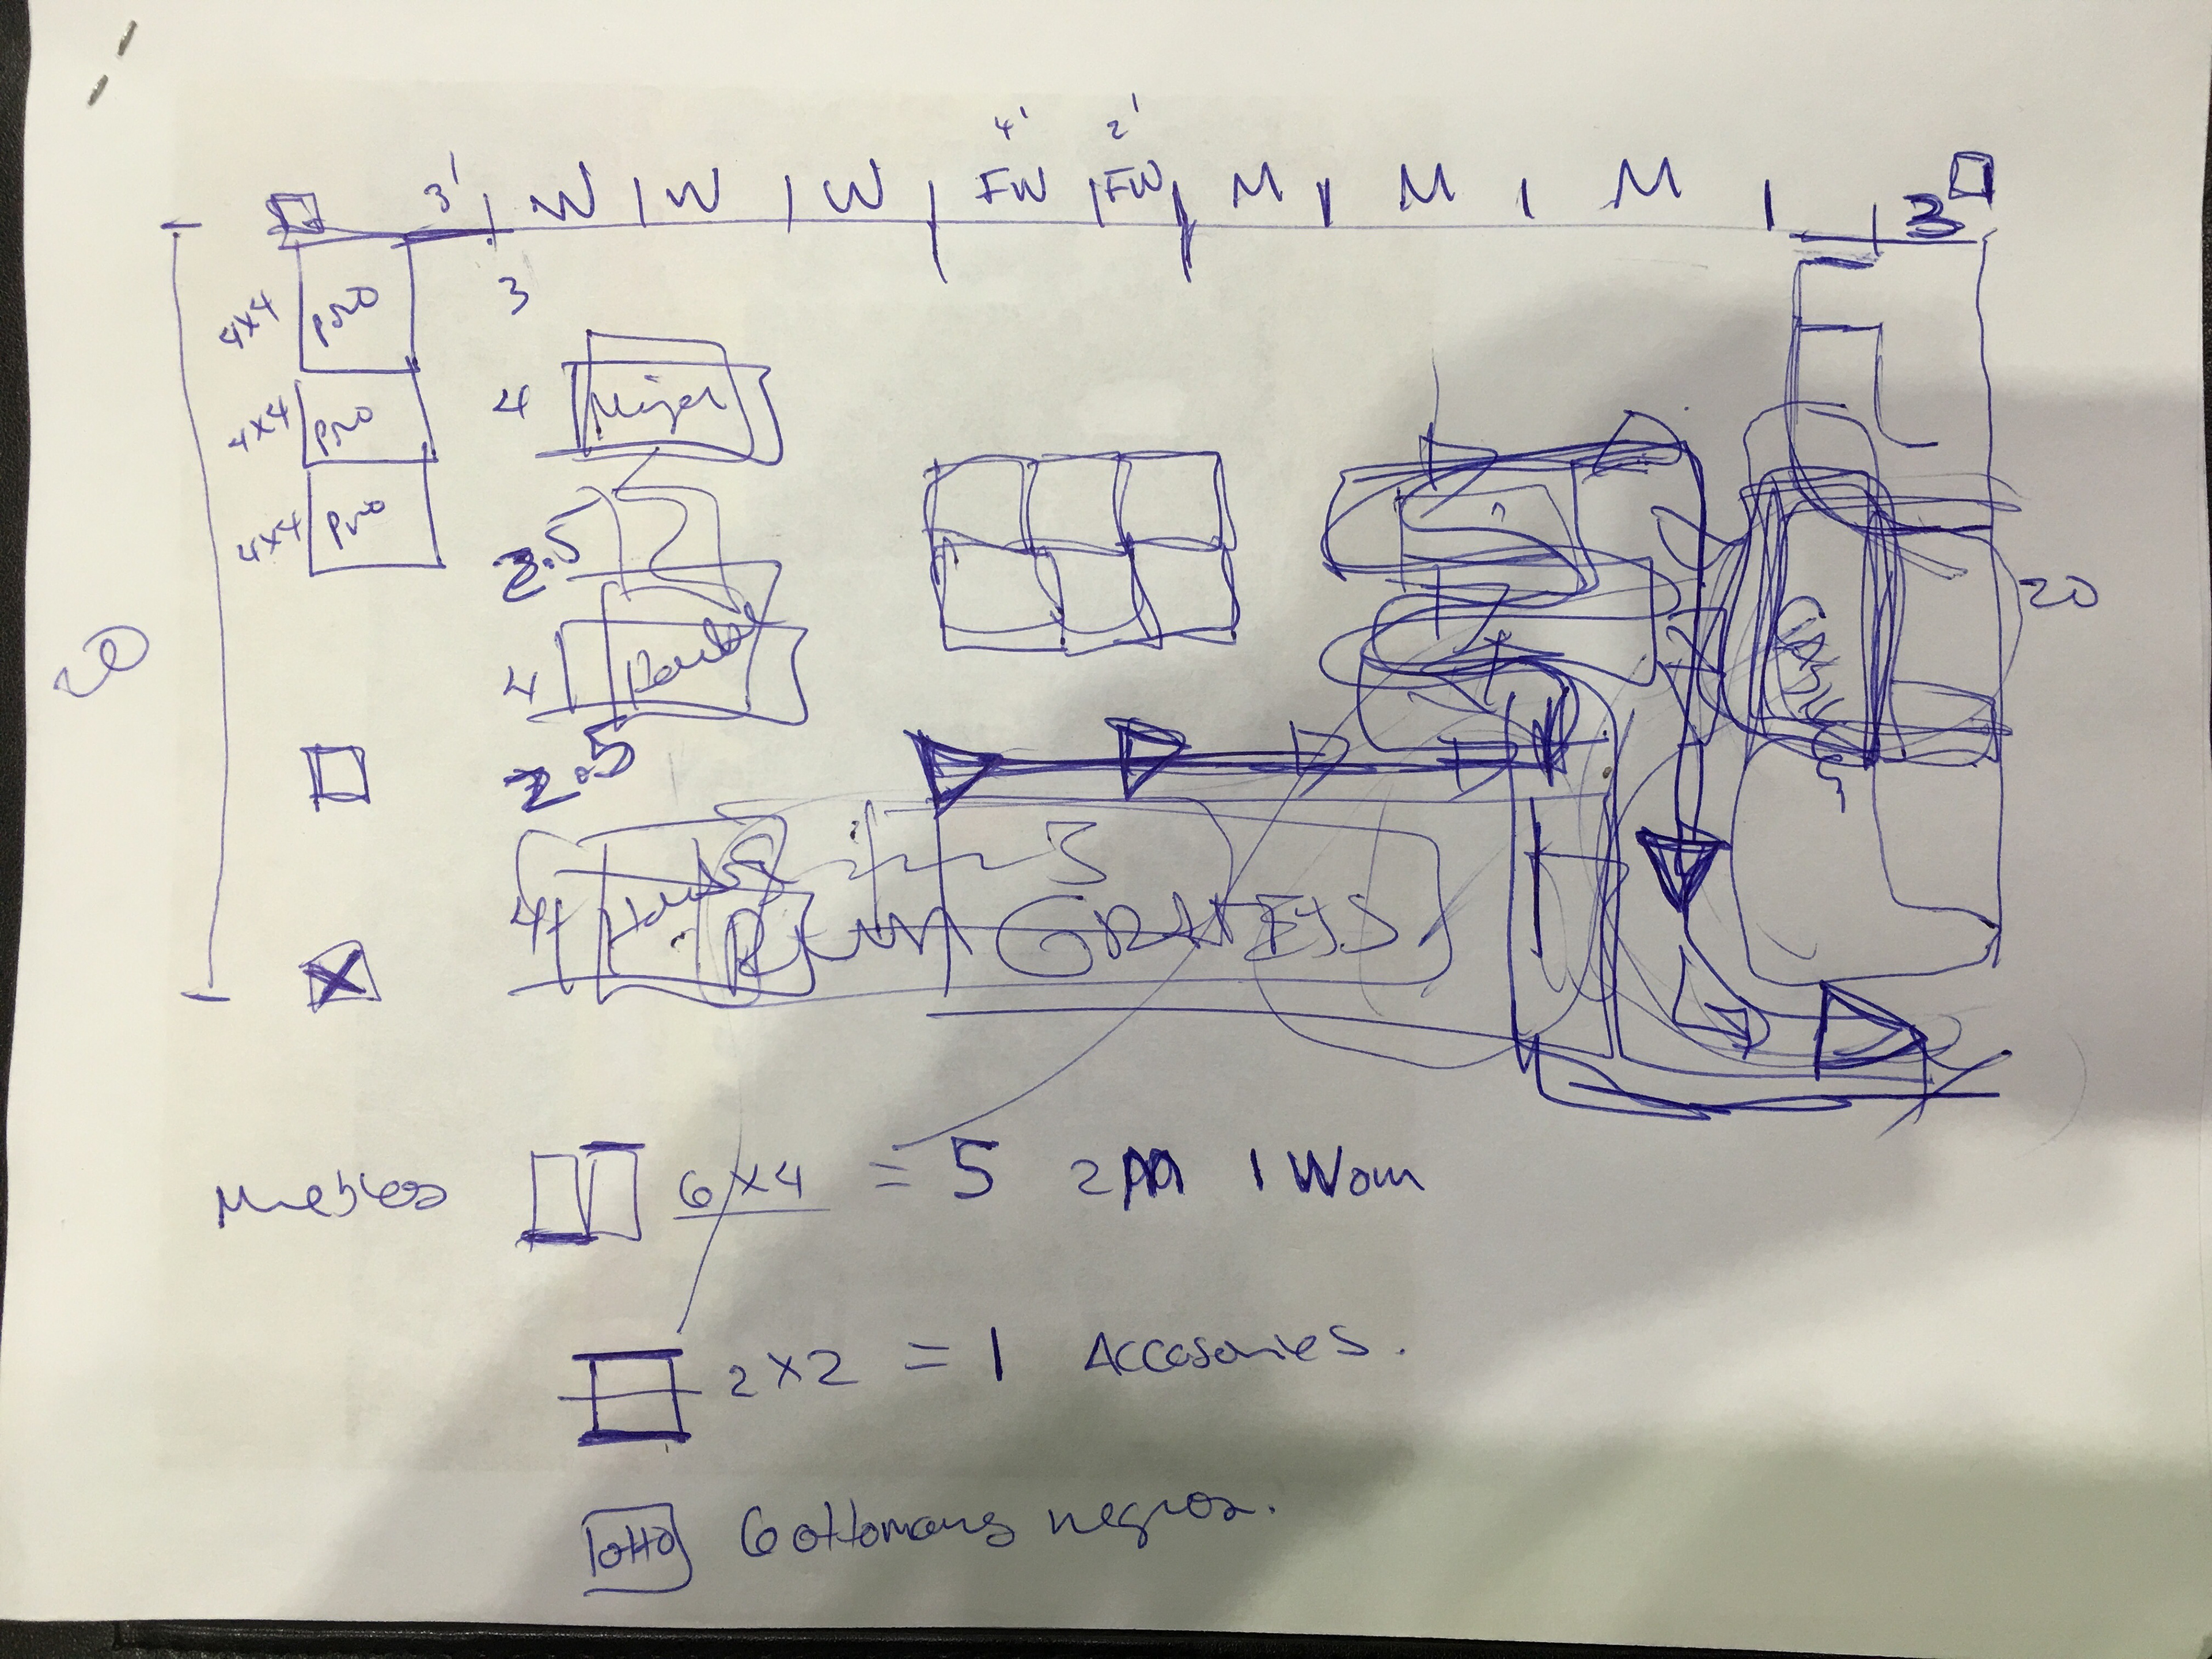 4' 2'
3' W W W FW FW M M M 3
4x4 pro 3
4x4 pro 4 Mujer
4x4 pro 2.5
20 20
4 Hombre
2.5
4
Muebles 6x4 = 5 2M 1 Wom
2x2 = 1 Accesories.
otto 6 ottomans negros.